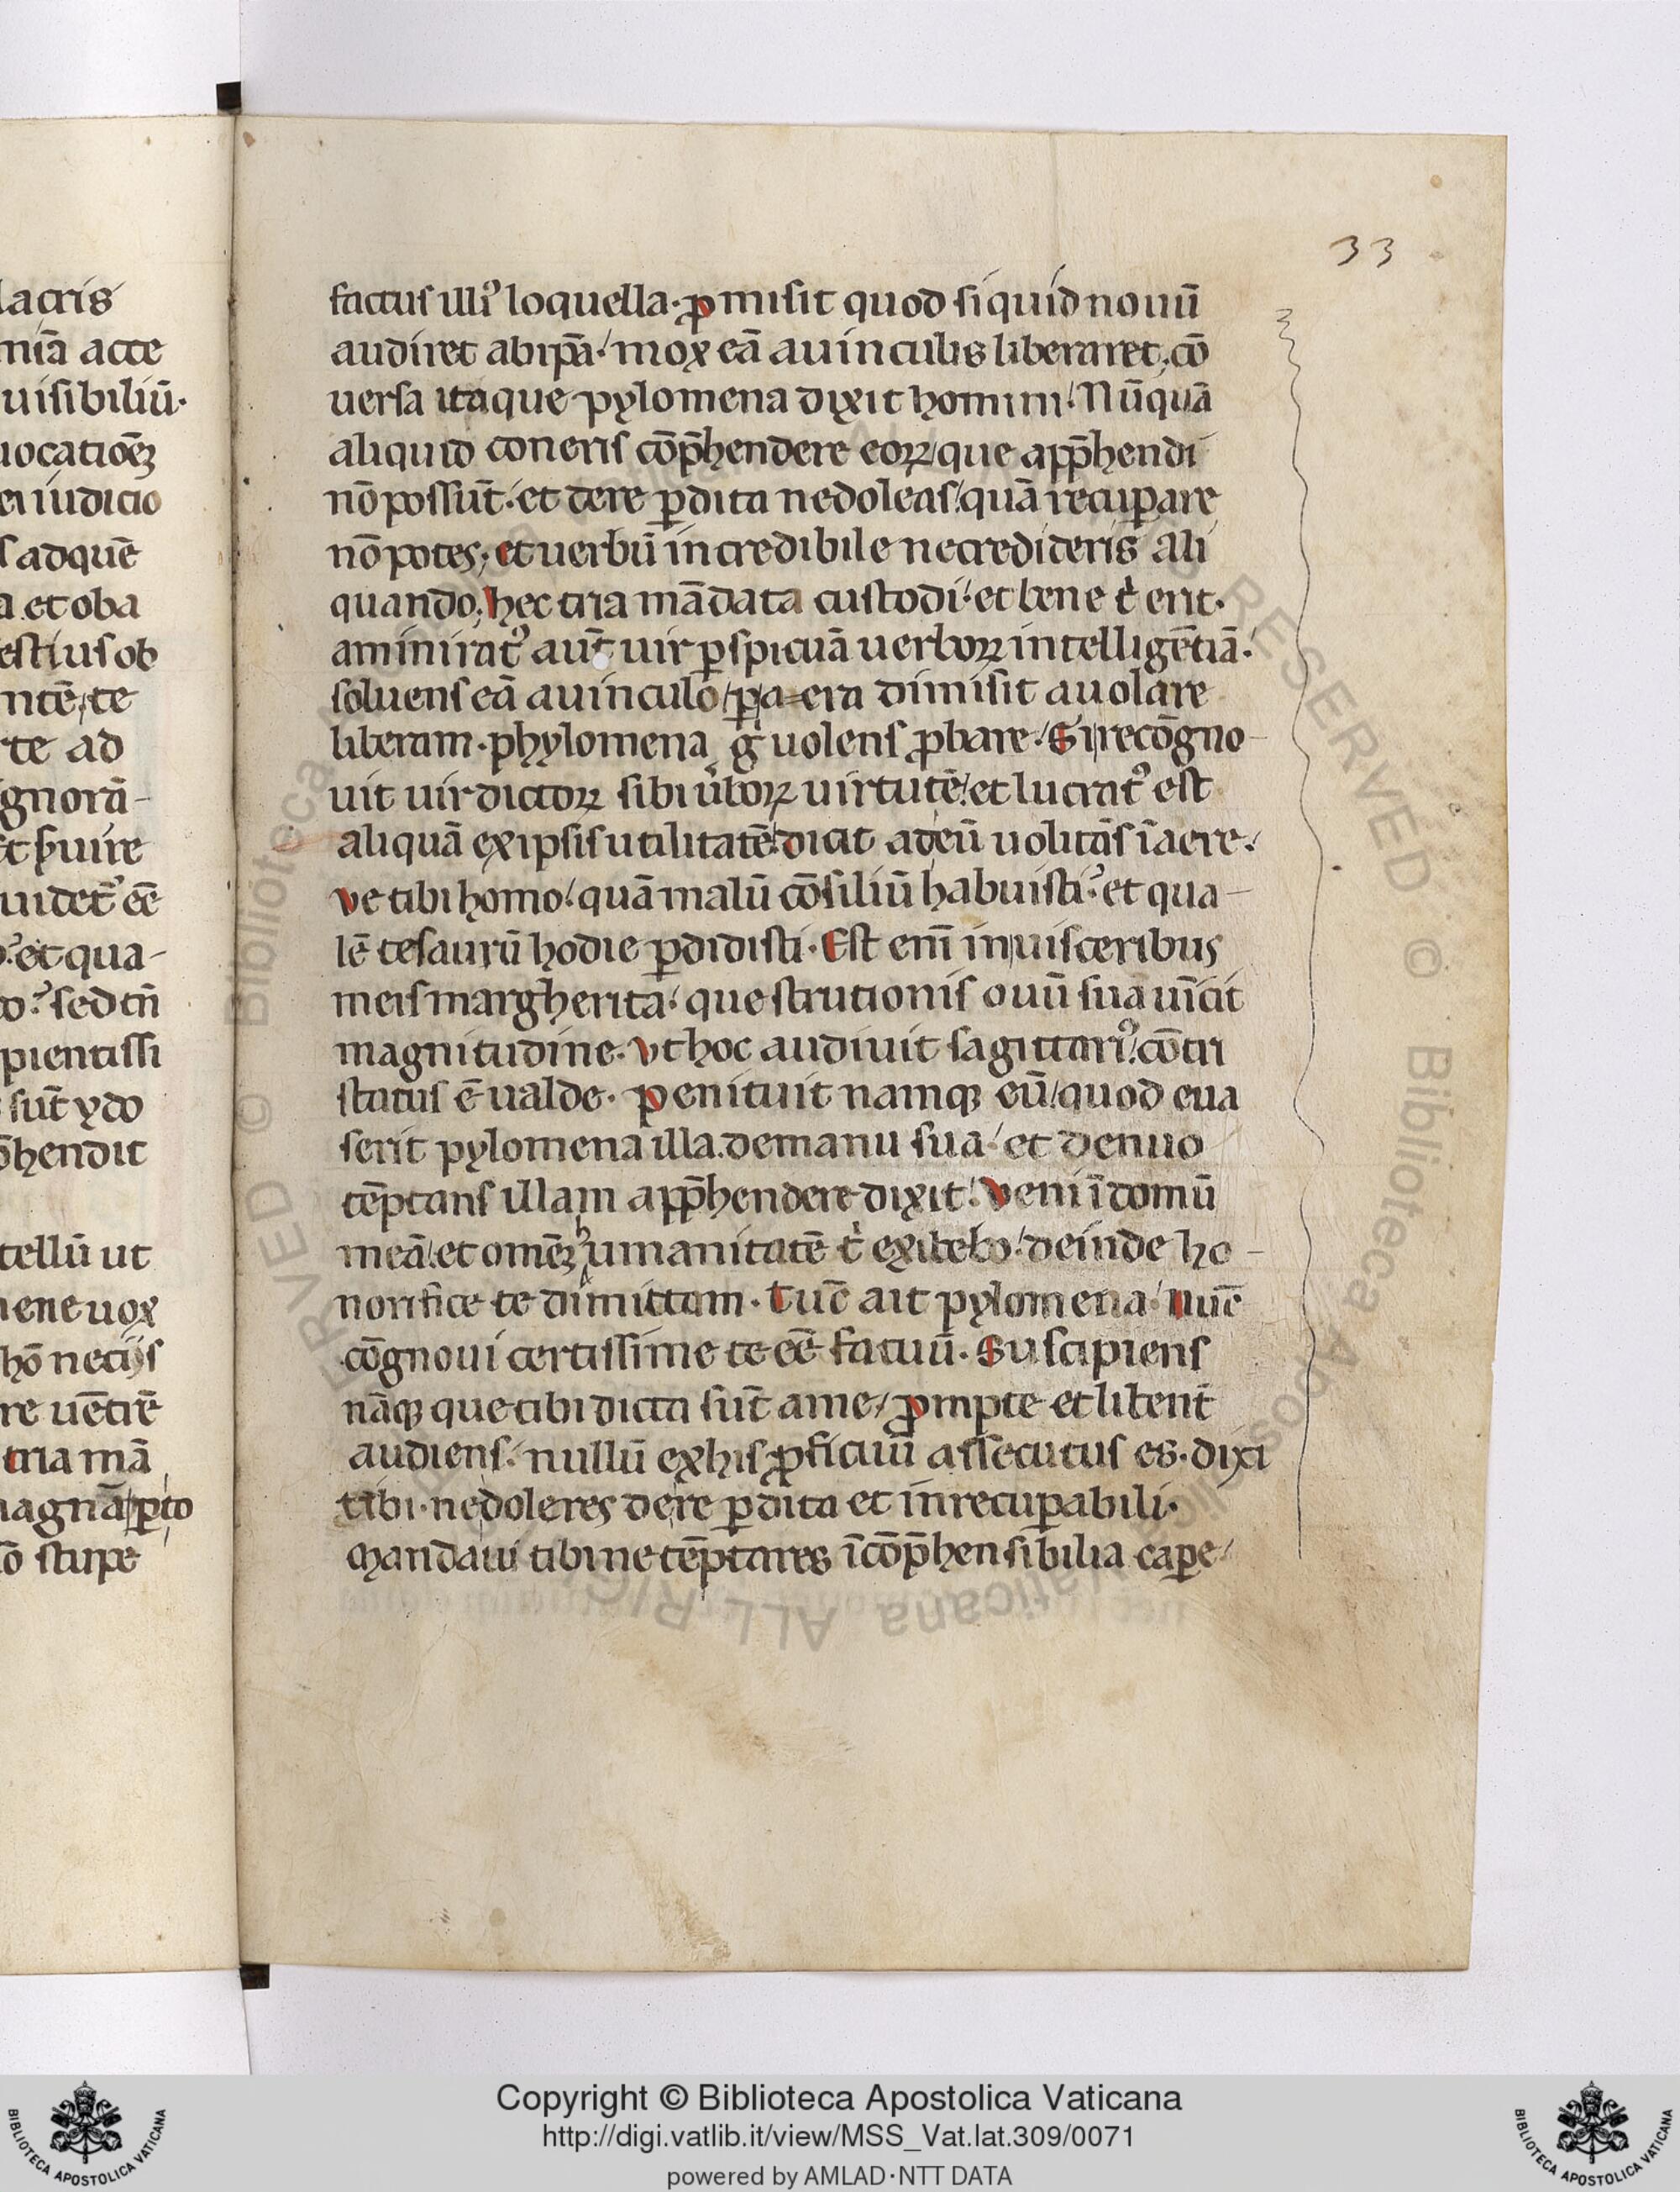 33
lacris
mīa acce
uisibiliū·
uocatiōēꝫ
ei iudicio
s adquē
a et oba
estius ob
ntē te
rte ad
gnorā-
et ẜuire
uidet᷒ eē
et qua-
o? sed tn̄
pientissi
sūt ydo
hendit
tellū ut
ene uox
hō necijs
re uētrē
tria mā
agnā ꝑto
stupe
factus illi᷒ loquella· ꝓmisit quod siquid nouū
audiret abip̄a· mox eā auinculis liberaret, cō
uersa itaque pylomena dixit homini: Nūquā
aliquid coneris cōp̄hendere eoꝝ que app̄hendi
nō possūt· et dere ꝑdita nedoleas quā recuꝑare
nō potes; et uerbū incredibile necredideris ali
quando; hec tria mādata custodi· et bene t̄ erit·
aminirat᷒ aūt uir ꝑspicuā uerboꝝ intelligētiā·
soluens eā auinculo ꝑ a=era dimisit auolare
liberam· phylomena gͥ uolens ꝓbare· Si recōgno-
uit uir dictoꝝ sibi ūboꝝ uirtutē et lucrat᷒ est
aliquā exipsis utilitatē dicit adeū uolitās īaere·
ve tibi homo! quā malū cōsiliū habuisti? et qua-
lē tesaurū hodie ꝑdidisti· Est eni᷒ inuisceribus
meis margherita· que strutionis ouū sua uīcit
magnitudine· vt hoc audiuit sagittari᷒ cōtri
status ē ualde· penituit namqꝫ eū quod eua
serit pylomena illa demanu sua· et denuo
tēptans illam app̄hendere dixit: veni ī domū
meā et omēꝫ humanitatē t̄ exibebo: deinde ho-
norifice te dimittam· Tūc ait pylomena· nūc
cōgnoui certissime te eē fatuū· Suscipiens
nāqꝫ que tibi dicta sūt ame ꝓmpte et libent᷒
audiens: nullū exhis ꝓficuū assecutus es· dixi
tibi· nedoleres dere ꝑdita et inrecuꝑabili·
Mandaui tibi ne tēptares īcōp̄hensibilia capere
Copyright © Biblioteca Apostolica Vaticana
http://digi.vatlib.it/view/MSS_Vat.lat.309/0071
powered by AMLAD·NTT DATA
BIBLIOTECA APOSTOLICA VATICANA
BIBLIOTECA APOSTOLICA VATICANA